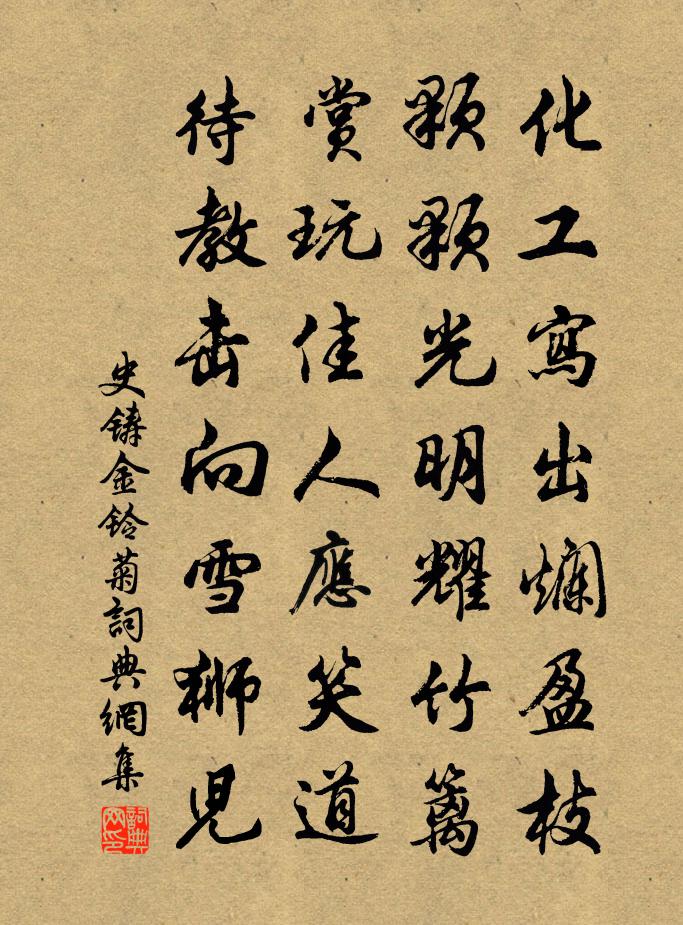 化工寫出爛盈枝
顆顆光明耀竹籬
賞玩佳人應笑道
待教击向雪獅児
史鑄金鈴菊詞典網集
詞典网印